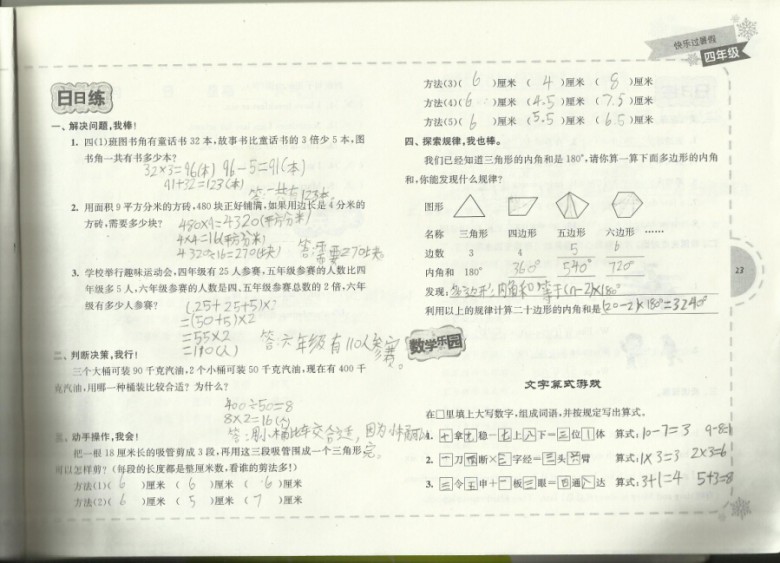 快乐过暑假
四年级
日日练
一、解决问题,我棒!
1. 四(1)班图书角有童话书 32 本,故事书比童话书的 3 倍少 5 本,图
书角一共有书多少本?
32×3=96(本) 96-5=91(本)
91+32=123(本)
答:一共有123本。
2. 用面积 9 平方分米的方砖,480 块正好铺满,如果用边长是 4 分米的
方砖,需要多少块?
480×9=4320(平方分米)
4×4=16(平方分米)
4320÷16=270(块)
答:需要270块
3. 学校举行趣味运动会,四年级有 25 人参赛,五年级参赛的人数比四
年级多 5 人,六年级参赛的人数是四、五年级参赛总数的 2 倍,六年
级有多少人参赛?
(25+25+5)×2
=(50+5)×2
=55×2
=110(人)
答:六年级有110人参赛。
二、判断决策,我行!
三个大桶可装 90 千克汽油,2 个小桶可装 50 千克汽油,现在有 400 千
克汽油,用哪一种桶装比较合适?为什么?
400÷50=8
8×2=16(个)
三、动手操作,我会!
把一根 18 厘米长的吸管剪成 3 段,再用这三段吸管围成一个三角形,
可以怎样剪?(每段的长度都是整厘米数,看谁的剪法多!)
方法(1)( 6 )厘米 ( 6 )厘米 ( 6 )厘米
方法(2)( 6 )厘米 ( 5 )厘米 ( 7 )厘米
方法(3)( 6 )厘米 ( 4 )厘米 ( 8 )厘米
方法(4)( 6 )厘米 ( 4.5 )厘米 ( 7.5 )厘米
方法(5)( 6 )厘米 ( 5.5 )厘米 ( 6.5 )厘米
四、探索规律,我也棒。
我们已经知道三角形的内角和是 180°,请你算一算下面多边形的内角
和,你能发现什么规律?
图形
名称 三角形 四边形 五边形 六边形 ……
边数 3 4 5 6
内角和 180° 360° 540° 720°
发现:多边形内角和等于(n-2)×180°
利用以上的规律计算二十边形的内角和是(20-2)×180°=3240°
23
数学乐园
文字算式游戏
在□里填上大写数字,组成词语,并按规定写出算式。
1. 十拿九稳-七上八下=三位一体 算式:10-7=3 9-8=1
2. 一刀两断×三字经=三头六臂 算式:1×3=3 2×3=6
3. 三令五申+一板三眼=四通八达 算式:3+1=4 5+3=8